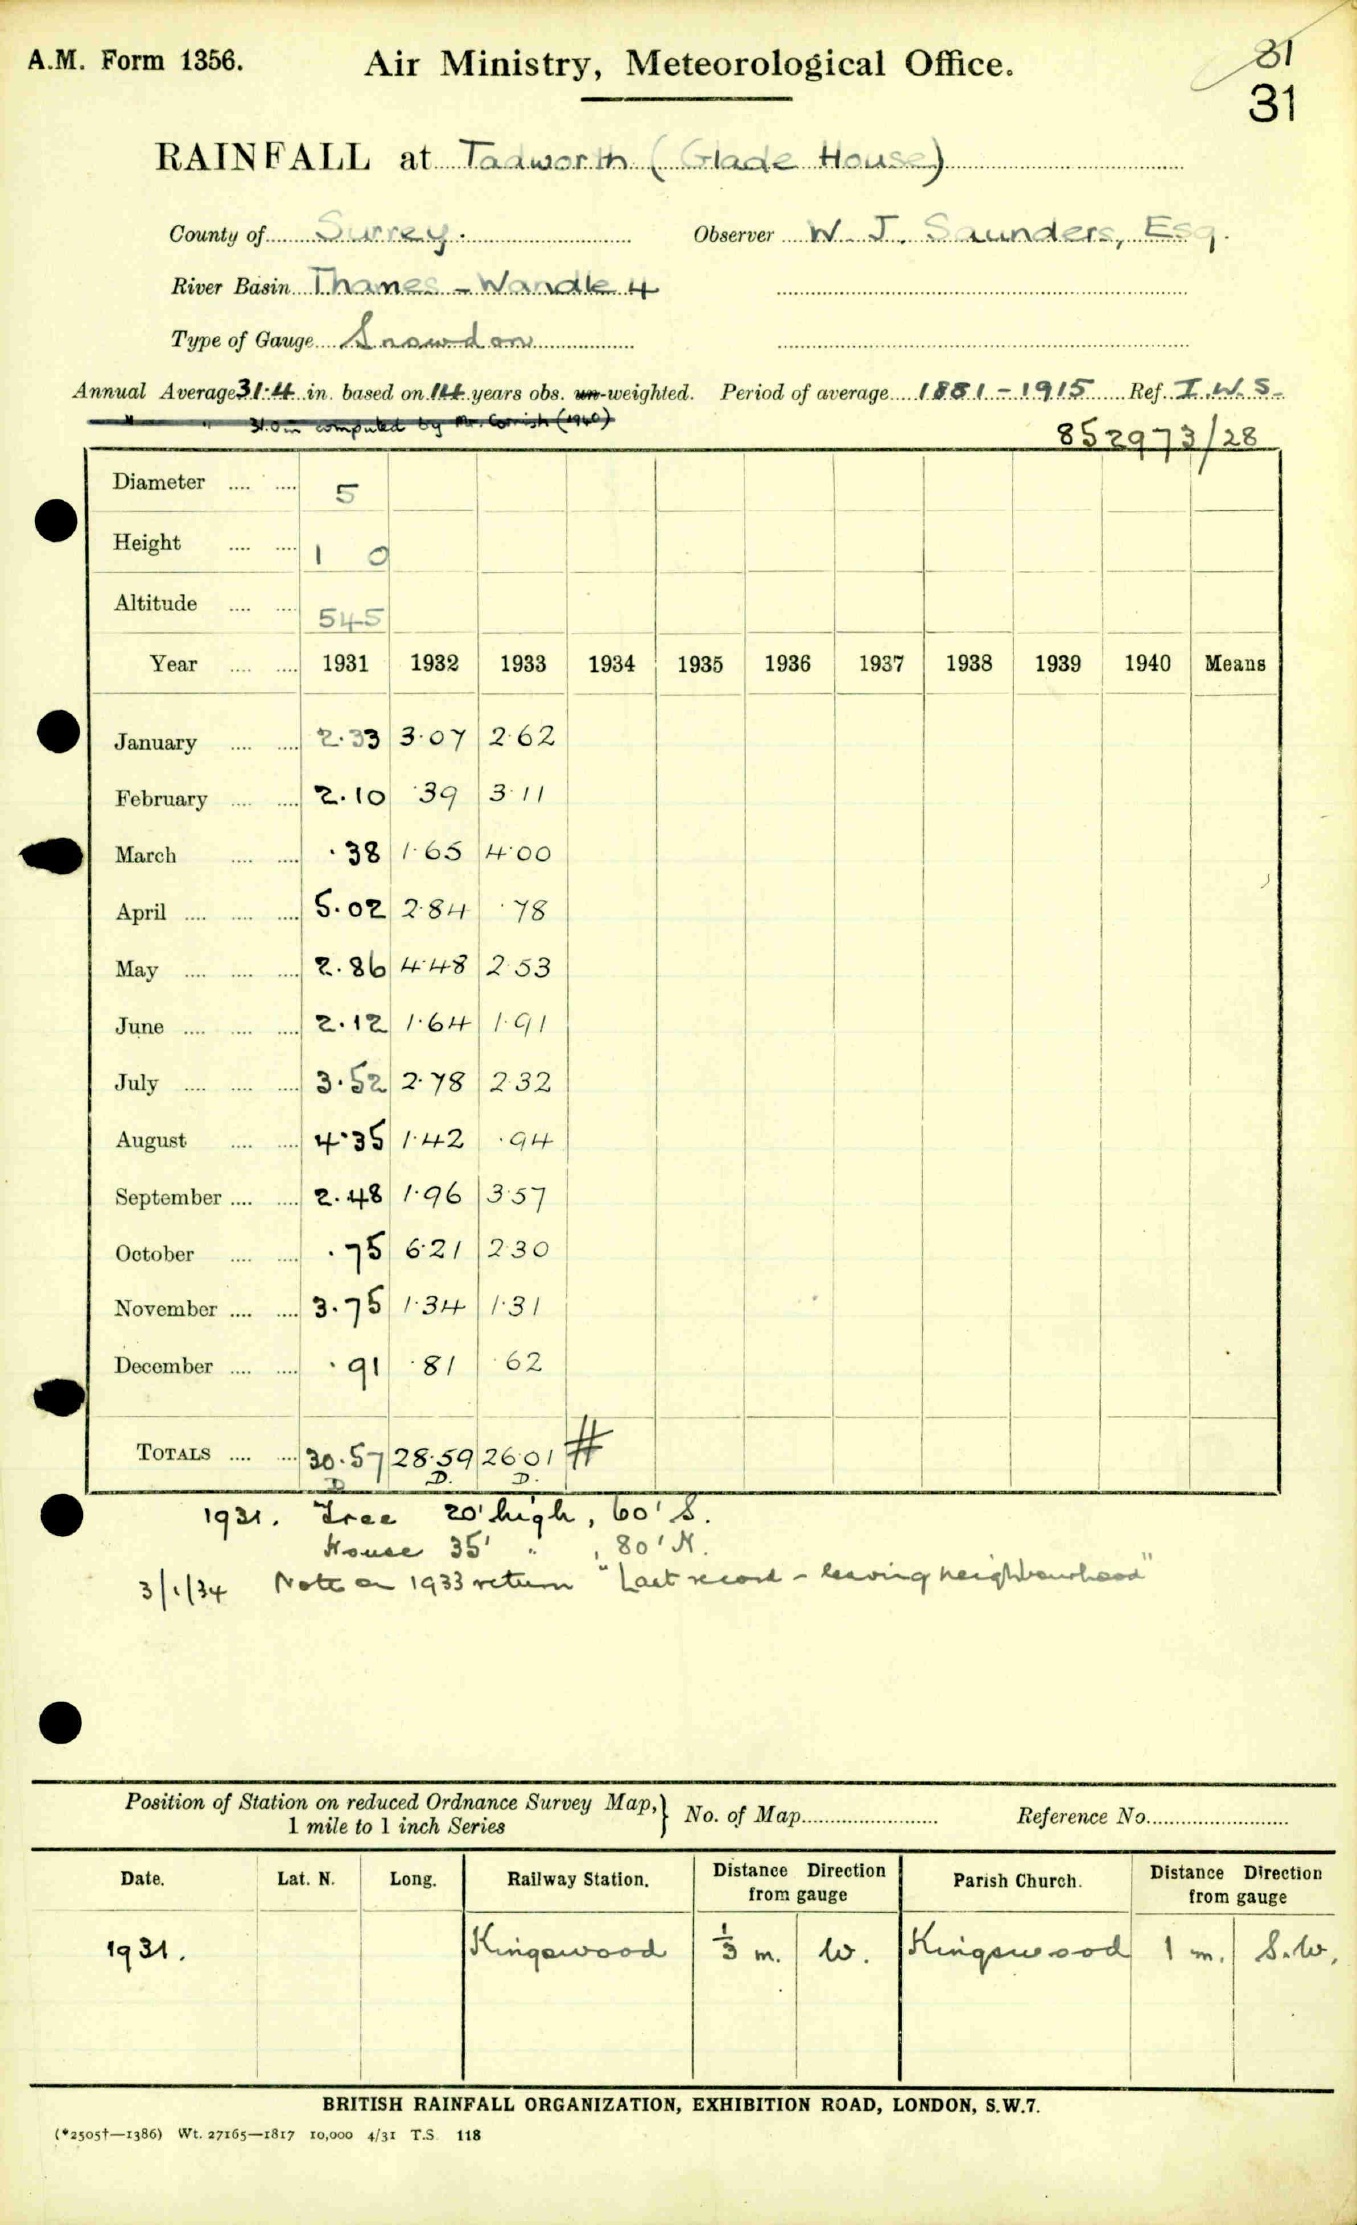 A.M. Form 1356. Air Ministry, Meteorological Office. 31
31
RAINFALL at Tadworth (Glade House)
County of Surrey. Observer W. J. Saunders, Esq.
River Basin Thames - Wandle 4
Type of Gauge Snowdon
Annual Average 31.4 in. based on 14 years obs. un-weighted. Period of average 1881-1915 Ref. I.W.S.
" " 31.0in computed by Mr. Cornish (1940)
852973/28
Diameter .... .... 5
Height .... .... 1 0
Altitude .... .... 545
Year .... .... 1931 1932 1933 1934 1935 1936 1937 1938 1939 1940 Means
January .... .... 2.33 3.07 2.62
February .... .... 2.10 .39 3.11
March .... .... .38 1.65 4.00
April .... .... .... 5.02 2.84 .78
May .... .... .... 2.86 4.48 2.53
June .... .... .... 2.12 1.64 1.91
July .... .... .... 3.52 2.78 2.32
August .... .... 4.35 1.42 .94
September .... .... 2.48 1.96 3.57
October .... .... .75 6.21 2.30
November .... .... 3.75 1.34 1.31
December .... .... .91 .81 .62
TOTALS .... .... 30.57 28.59 26.01 #
D D. D.
1931. Tree 20' high, 60' S.
House 35' " , 80' N.
3/1/34 Note on 1933 return "Last record - leaving neighbourhood"
Position of Station on reduced Ordnance Survey Map, } No. of Map Reference No.
1 mile to 1 inch Series
Date. Lat. N. Long. Railway Station. Distance Direction from gauge Parish Church. Distance Direction from gauge
1931. Kingswood 1/3 m. W. Kingswood 1 m. S.W.
BRITISH RAINFALL ORGANIZATION, EXHIBITION ROAD, LONDON, S.W.7.
(*2505†—1386) Wt. 27165—1817 10,000 4/31 T.S. 118